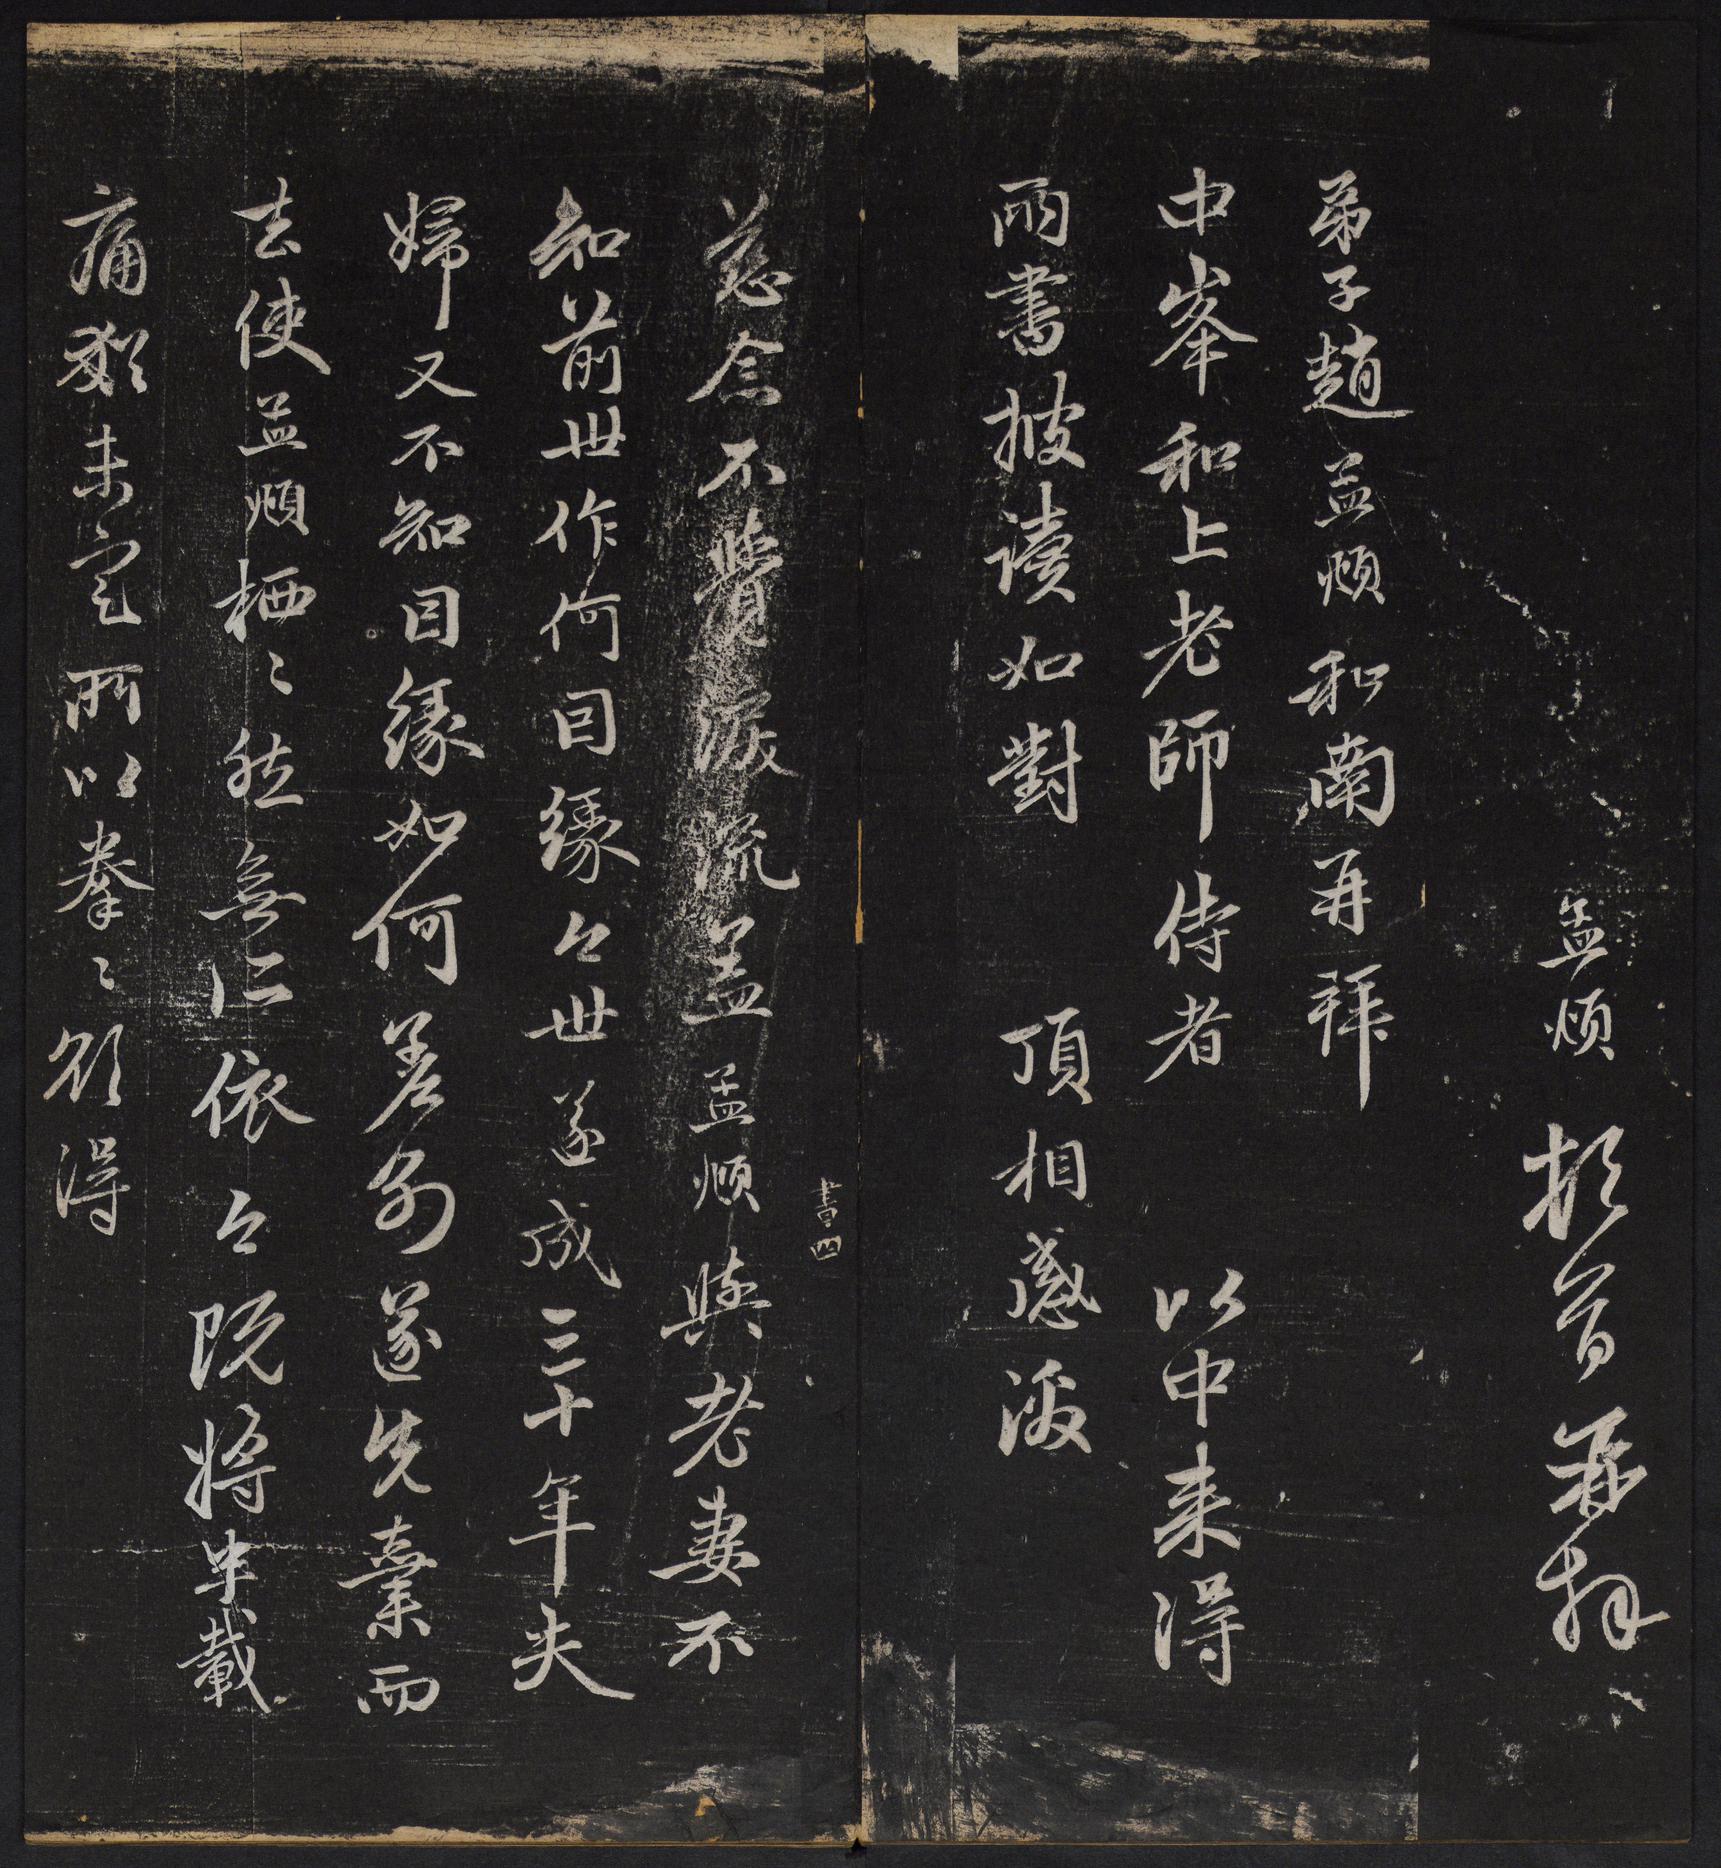 孟頫頓首再拜
弟子趙孟頫和南再拜
中峯和上老師侍者 以中来得
兩書披讀如對 頂相感激
書四
慈念不覺淚流蓋孟頫與老妻不
知前世作何因緣今世遂成三十年夫
婦又不知因緣如何差別遂先棄而
去使孟頫栖〻然無所依今既將半載
痛猶未定所以拳〻欲得